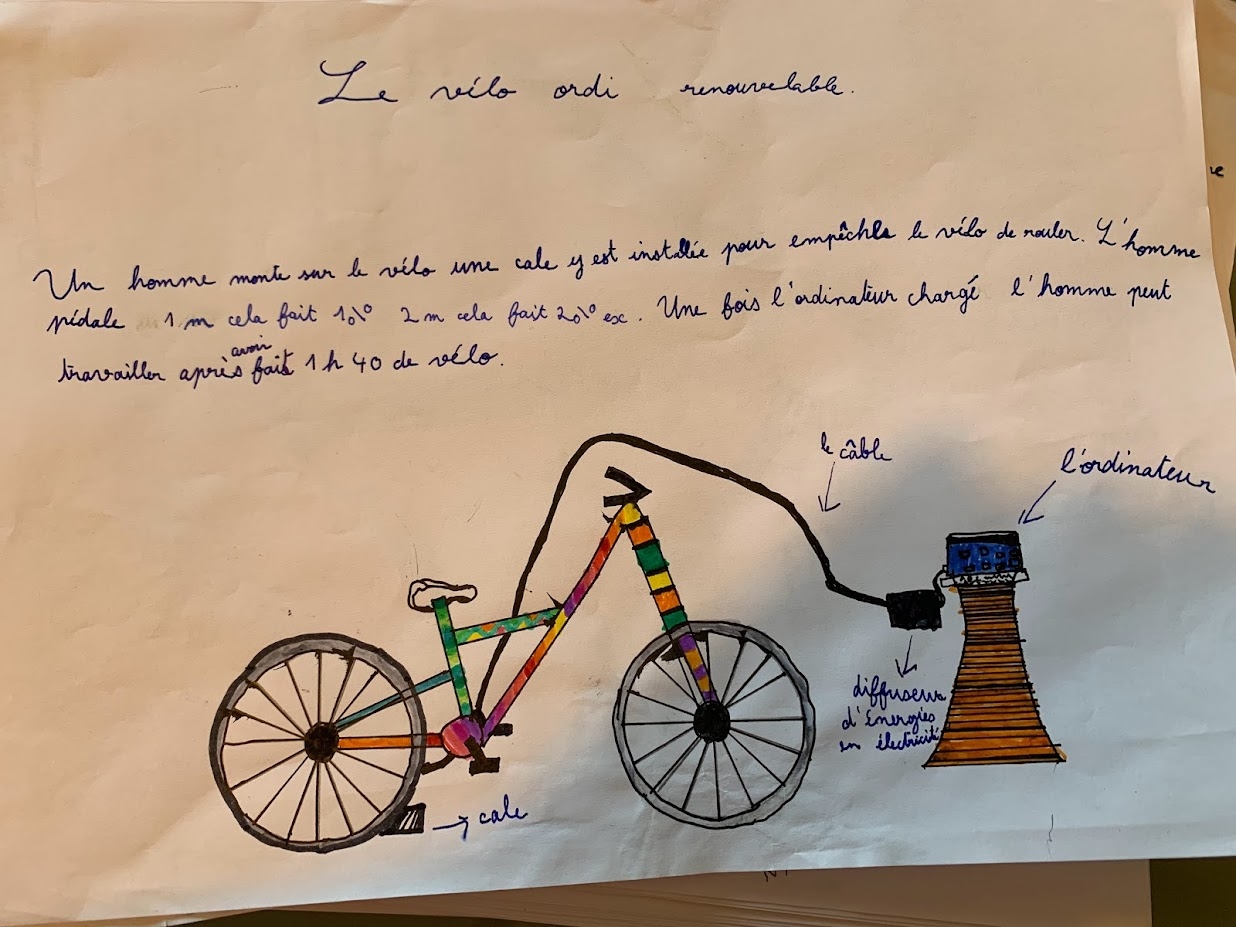 Le vélo ordi renouvelable.
Un homme monte sur le vélo une cale y est installée pour empêchle le vélo de rouler. L'homme
pédale 1 m cela fait 1% 2 m cela fait 2% ex. Une fois l'ordinateur chargé l'homme peut
avoir
travailler après fait 1 h 40 de vélo.
le câble
l'ordinateur
diffuseur
d'énergies
en électricité
cale